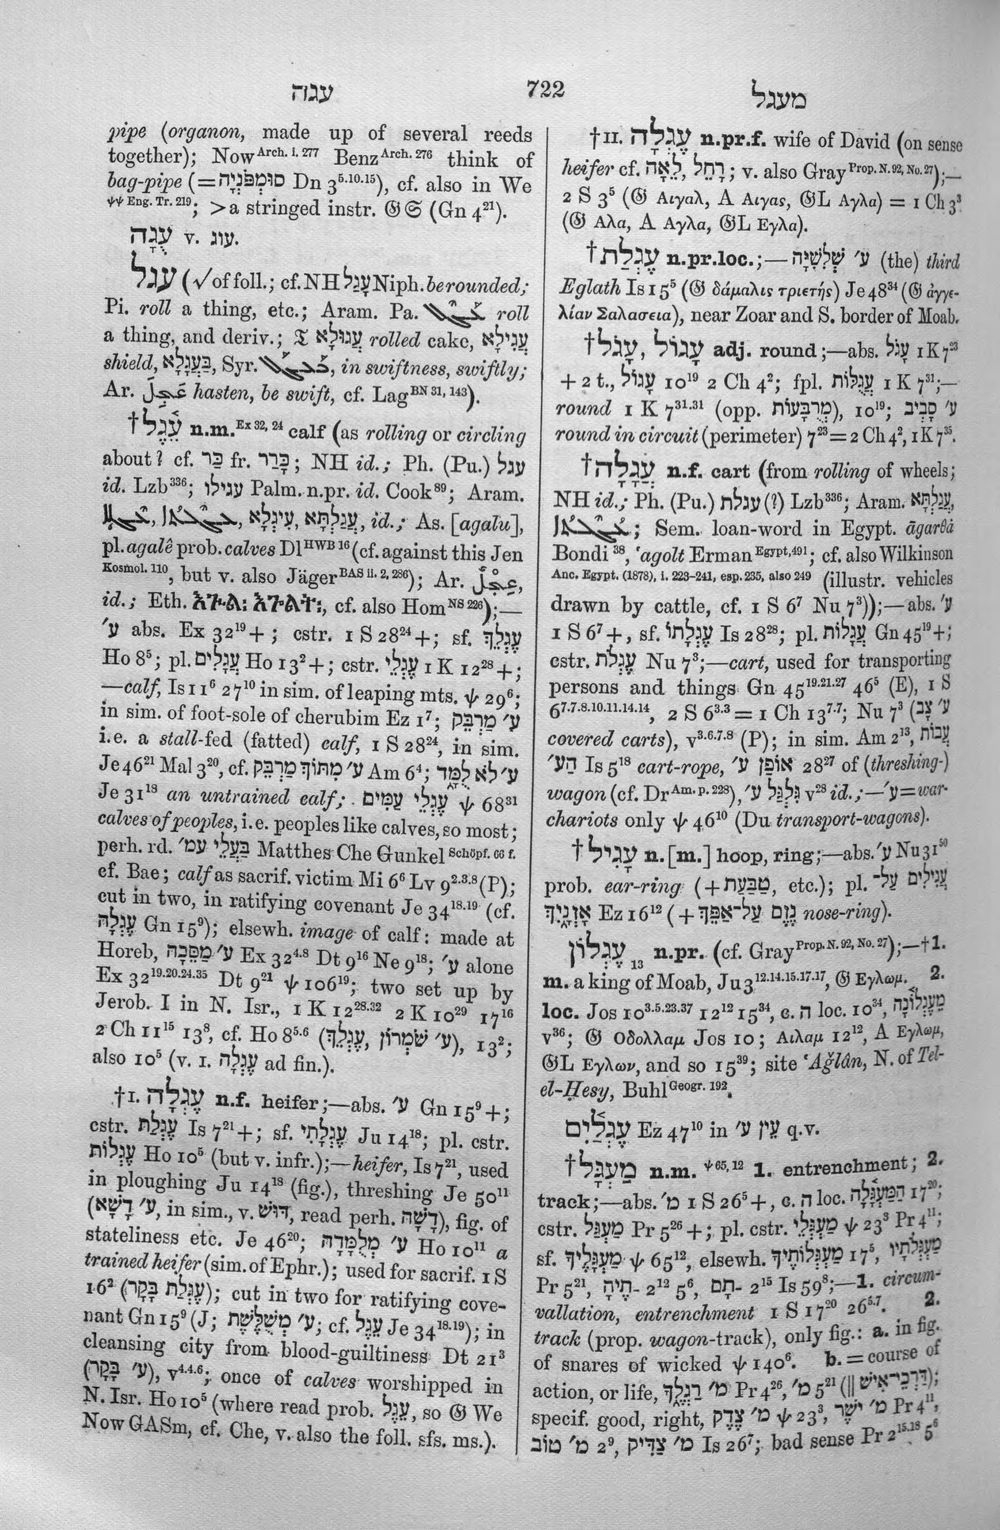 עגה
722
מעגל
pipe (organon, made up of several reeds
together); Now Arch. i. 277 Benz Arch. 276 think of
bag-pipe (= סוּמְפֹּנְיָה Dn 3 5.10.15), cf. also in We
ψψ Eng. Tr. 219; > a stringed instr. 𝔊 𝔖 (Gn 4 21).
עֻגָה v. עוג.
עגל (√ of foll.; cf. NH עגל Niph. be rounded;
Pi. roll a thing, etc.; Aram. Pa. roll
a thing, and deriv.; 𝔗 rolled cake,
shield, Syr. in swiftness, swiftly;
Ar. hasten, be swift, cf. Lag BN 31, 143).
† עֵגֶל n.m. Ex 32, 24 calf (as rolling or circling
about? cf. כַּר fr. כָּרַר; NH id.; Ph. (Pu.) עגל
id. Lzb 336; עגילו Palm. n.pr. id. Cook 89; Aram.
id.; As. [agalu],
pl. agalê prob. calves Dl HWB 16 (cf. against this Jen
Kosmol. 110, but v. also Jäger BAS ii. 2, 286); Ar.
id.; Eth. cf. also Hom NS 226);—
ע׳ abs. Ex 32 19 + ; cstr. 1 S 28 24 +; sf. עֶגְלֵךְ
Ho 8 5; pl. עֲגָלִים Ho 13 2 +; cstr. עֶגְלֵי 1 K 12 28 +;
—calf, Is 11 6 27 10 in sim. of leaping mts. ψ 29 6;
in sim. of foot-sole of cherubim Ez 1 7; ע׳ מַרְבֵּק
i.e. a stall-fed (fatted) calf, 1 S 28 24, in sim.
Je 46 21 Mal 3 20, cf. ע׳ מִתּוֹךְ מַרְבֵּק Am 6 4; ע׳ לֹא לֻמָּד
Je 31 18 an untrained calf; עֶגְלֵי עַמִּים ψ 68 31
calves of peoples, i.e. peoples like calves, so most;
perh. rd. בַּעֲלֵי עמ׳ Matthes Che Gunkel Schöpf. 66 f.
cf. Bae; calf as sacrif. victim Mi 6 6 Lv 9 2.3.8 (P);
cut in two, in ratifying covenant Je 34 18.19 (cf.
עֶגְלָה Gn 15 9); elsewh. image of calf: made at
Horeb, ע׳ מַסֵּכָה Ex 32 4.8 Dt 9 16 Ne 9 18; ע׳ alone
Ex 32 19.20.24.35 Dt 9 21 ψ 106 19; two set up by
Jerob. I in N. Isr., 1 K 12 28.32 2 K 10 29 17 16
2 Ch 11 15 13 8, cf. Ho 8 5.6 (עֶגְלֵךְ, ע׳ שֹׁמְרוֹן), 13 2;
also 10 5 (v. I. עֶגְלָה ad fin.).
† I. עֶגְלָה n.f. heifer;—abs. ע׳ Gn 15 9 +;
cstr. עֶגְלַת Is 7 21 +; sf. עֶגְלָתִי Ju 14 18; pl. cstr.
עֶגְלוֹת Ho 10 5 (but v. infr.);—heifer, Is 7 21, used
in ploughing Ju 14 18 (fig.), threshing Je 50 11
(ע׳ דָּשָׁא, in sim., v. דּוּשׁ, read perh. דָּשָׁה), fig. of
stateliness etc. Je 46 20; ע׳ מְלֻמָּדָה Ho 10 11 a
trained heifer (sim. of Ephr.); used for sacrif. 1 S
16 2 (עֶגְלַת בָּקָר); cut in two for ratifying cove-
nant Gn 15 9 (J; ע׳ מְשֻׁלֶּשֶׁת; cf. עֵגֶל Je 34 18.19); in
cleansing city from blood-guiltiness Dt 21 3
(ע׳ בָּקָר), v 4.4.6; once of calves worshipped in
N. Isr. Ho 10 5 (where read prob. עֵגֶל, so 𝔊 We
Now GASm, cf. Che, v. also the foll. sfs. ms.).
† II. עֶגְלָה n.pr.f. wife of David (on sense
heifer cf. רָחֵל, לֵאָה; v. also Gray Prop. N. 92, No. 27);—
2 S 3 5 (𝔊 Αιγαλ, A Αιγας, 𝔊L Αγλα) = 1 Ch 3 3
(𝔊 Αλα, A Αγλα, 𝔊L Εγλα).
† עֶגְלַת n.pr.loc.;—ע׳ שְׁלִשִׁיָּה (the) third
Eglath Is 15 5 (𝔊 δάμαλις τριετής) Je 48 34 (𝔊 ἀγγε-
λίαν Σαλασεια), near Zoar and S. border of Moab.
† עָגֹל, עָגוֹל adj. round;—abs. עָגֹל 1 K 7 23
+ 2 t., עָגוֹל 10 19 2 Ch 4 2; fpl. עֲגֻלוֹת 1 K 7 31;—
round 1 K 7 31.31 (opp. מְרֻבָּעוֹת), 10 19; ע׳ סָבִיב
round in circuit (perimeter) 7 23 = 2 Ch 4 2, 1 K 7 35.
† עֲגָלָה n.f. cart (from rolling of wheels;
NH id.; Ph. (Pu.) עגלת (?) Lzb 336; Aram.
Sem. loan-word in Egypt. āgarθȧ
Bondi 38, ‘agolt Erman Egypt, 491; cf. also Wilkinson
Anc. Egypt. (1878), i. 223–241, esp. 235, also 249 (illustr. vehicles
drawn by cattle, cf. 1 S 6 7 Nu 7 3));—abs. ע׳
1 S 6 7 +, sf. עֶגְלָתוֹ Is 28 28; pl. עֲגָלוֹת Gn 45 19 +;
cstr. עֶגְלֹת Nu 7 3;—cart, used for transporting
persons and things Gn 45 19.21.27 46 5 (E), 1 S
6 7.7.8.10.11.14.14, 2 S 6 3.3 = 1 Ch 13 7.7; Nu 7 3 (ע׳ צָב
covered carts), v 3.6.7.8 (P); in sim. Am 2 13, עֲבוֹת
הָע׳ Is 5 18 cart-rope, אוֹפַן ע׳ 28 27 of (threshing-)
wagon (cf. Dr Am. p. 228), גִּלְגַּל ע׳ v 28 id.;—ע׳ = war-
chariots only ψ 46 10 (Du transport-wagons).
† עָגִיל n.[m.] hoop, ring;—abs. ע׳ Nu 31 50
prob. ear-ring (+ טַבַּעַת, etc.); pl. עֲגִילִים עַל־
אָזְנָיִךְ Ez 16 12 (+ נֶזֶם עַל־אַפֵּךְ nose-ring).
עֶגְלוֹן 13 n.pr. (cf. Gray Prop. N. 92, No. 27);—† 1.
m. a king of Moab, Ju 3 12.14.15.17.17, 𝔊 Εγλωμ. 2.
loc. Jos 10 3.5.23.37 12 12 15 34, c. ה loc. 10 34, עֶגְלוֹנָה
v 36; 𝔊 Οδολλαμ Jos 10; Αιλαμ 12 12, A Εγλωμ,
𝔊L Εγλων, and so 15 39; site ‘Aǧlân, N. of Tel-
el-Ḥesy, Buhl Geogr. 192.
עֶגְלַיִם Ez 47 10 in עֵין ע׳ q.v.
† מַעְגָּל n.m. ψ 65, 12 1. entrenchment; 2.
track;—abs. מ׳ 1 S 26 5 +, c. ה loc. הַמַּעְגָּלָה 17 20;
cstr. מַעְגַּל Pr 5 26 +; pl. cstr. מַעְגְּלֵי ψ 23 3 Pr 4 11;
sf. מַעְגָּלֶיךָ ψ 65 12, elsewh. מַעְגְּלוֹתֶיךָ 17 5, מַעְגְּלֹתָיו
Pr 5 21, ־תֶיהָ 2 12 5 6, ־תָם 2 15 Is 59 8;—1. circum-
vallation, entrenchment 1 S 17 20 26 5.7. 2.
track (prop. wagon-track), only fig.: a. in fig.
of snares of wicked ψ 140 6. b. = course of
action, or life, מ׳ רַגְלֶךָ Pr 4 26, מ׳ 5 21 (‖ דַּרְכֵי־אִישׁ);
specif. good, right, מ׳ צֶדֶק ψ 23 3, מ׳ יֹשֶׁר Pr 4 11,
מ׳ טוֹב 2 9, מ׳ צַדִּיק Is 26 7; bad sense Pr 2 15.18 5 6